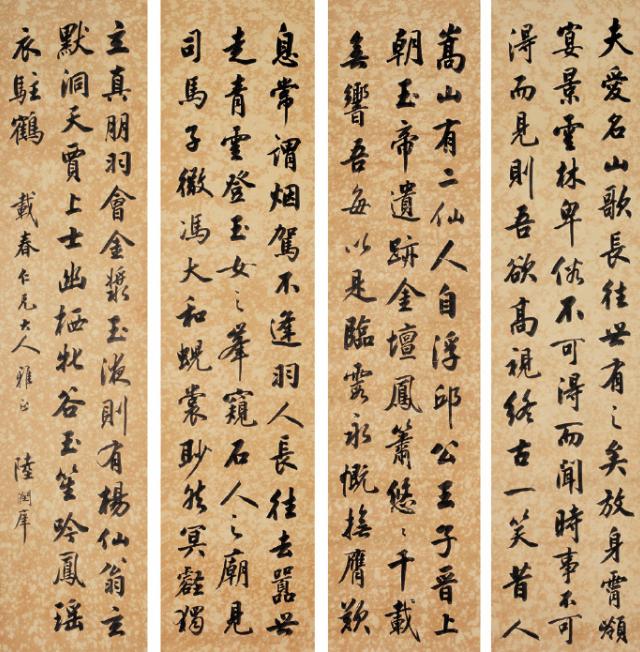 夫愛名山歌長往世有之矣放身霄嶺
宴景雲林卑俗不可得而聞時事不可
得而見則吾欲高視終古一笑昔人
嵩山有二仙人自浮邱公王子晉上
朝玉帝遺跡金壇鳳簫悠悠千載
無響吾每以是臨霞永慨撫膺歎
息常謂烟駕不逢羽人長往去囂世
走青雲登玉女之峯窺石人之廟見
司馬子微馮大和蜺裳眇然冥壑獨
立真朋羽會金漿玉液則有楊仙翁玄
默洞天賈上士幽栖牝谷玉笙吟鳳瑶
衣駐鶴
載春仁兄大人雅正
陸潤庠